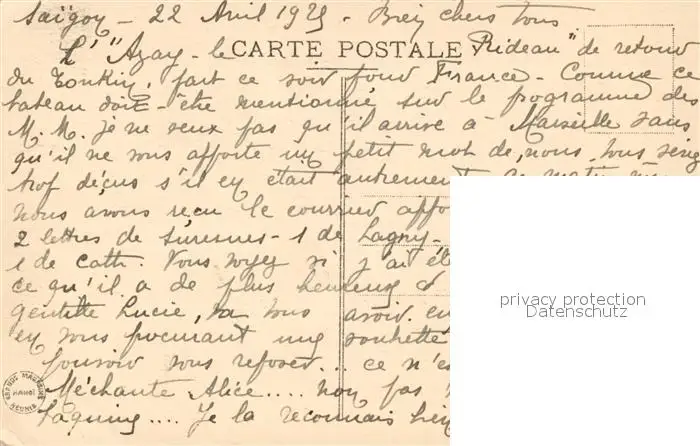 Saïgon - 22 Avril 1925 - Bien chers tous
L' "Azay - le CARTE POSTALE Rideau" de retour
du Tonkin, part ce soir pour France - Comme ce
bateau doit - être mentionné sur le programme des
M. M. je ne veux pas qu'il arrive à Marseille sans
qu'il ne vous apporte un petit mot de nous. Vous seriez
trop déçus s'il en était autrement
nous avons reçu le courrier
2 lettres de Suresnes - 1 de Lagny -
1 de Cath. Vous voyez si j'ai
ce qu'il a de plus heureux
gentille Lucie, va vous avoir
en vous procurant une
pouvoir vous reposer... ce
Méchante Alice.... non pas
taquine.... Je la reconnais bien
privacy protection
Datenschutz
HANOI